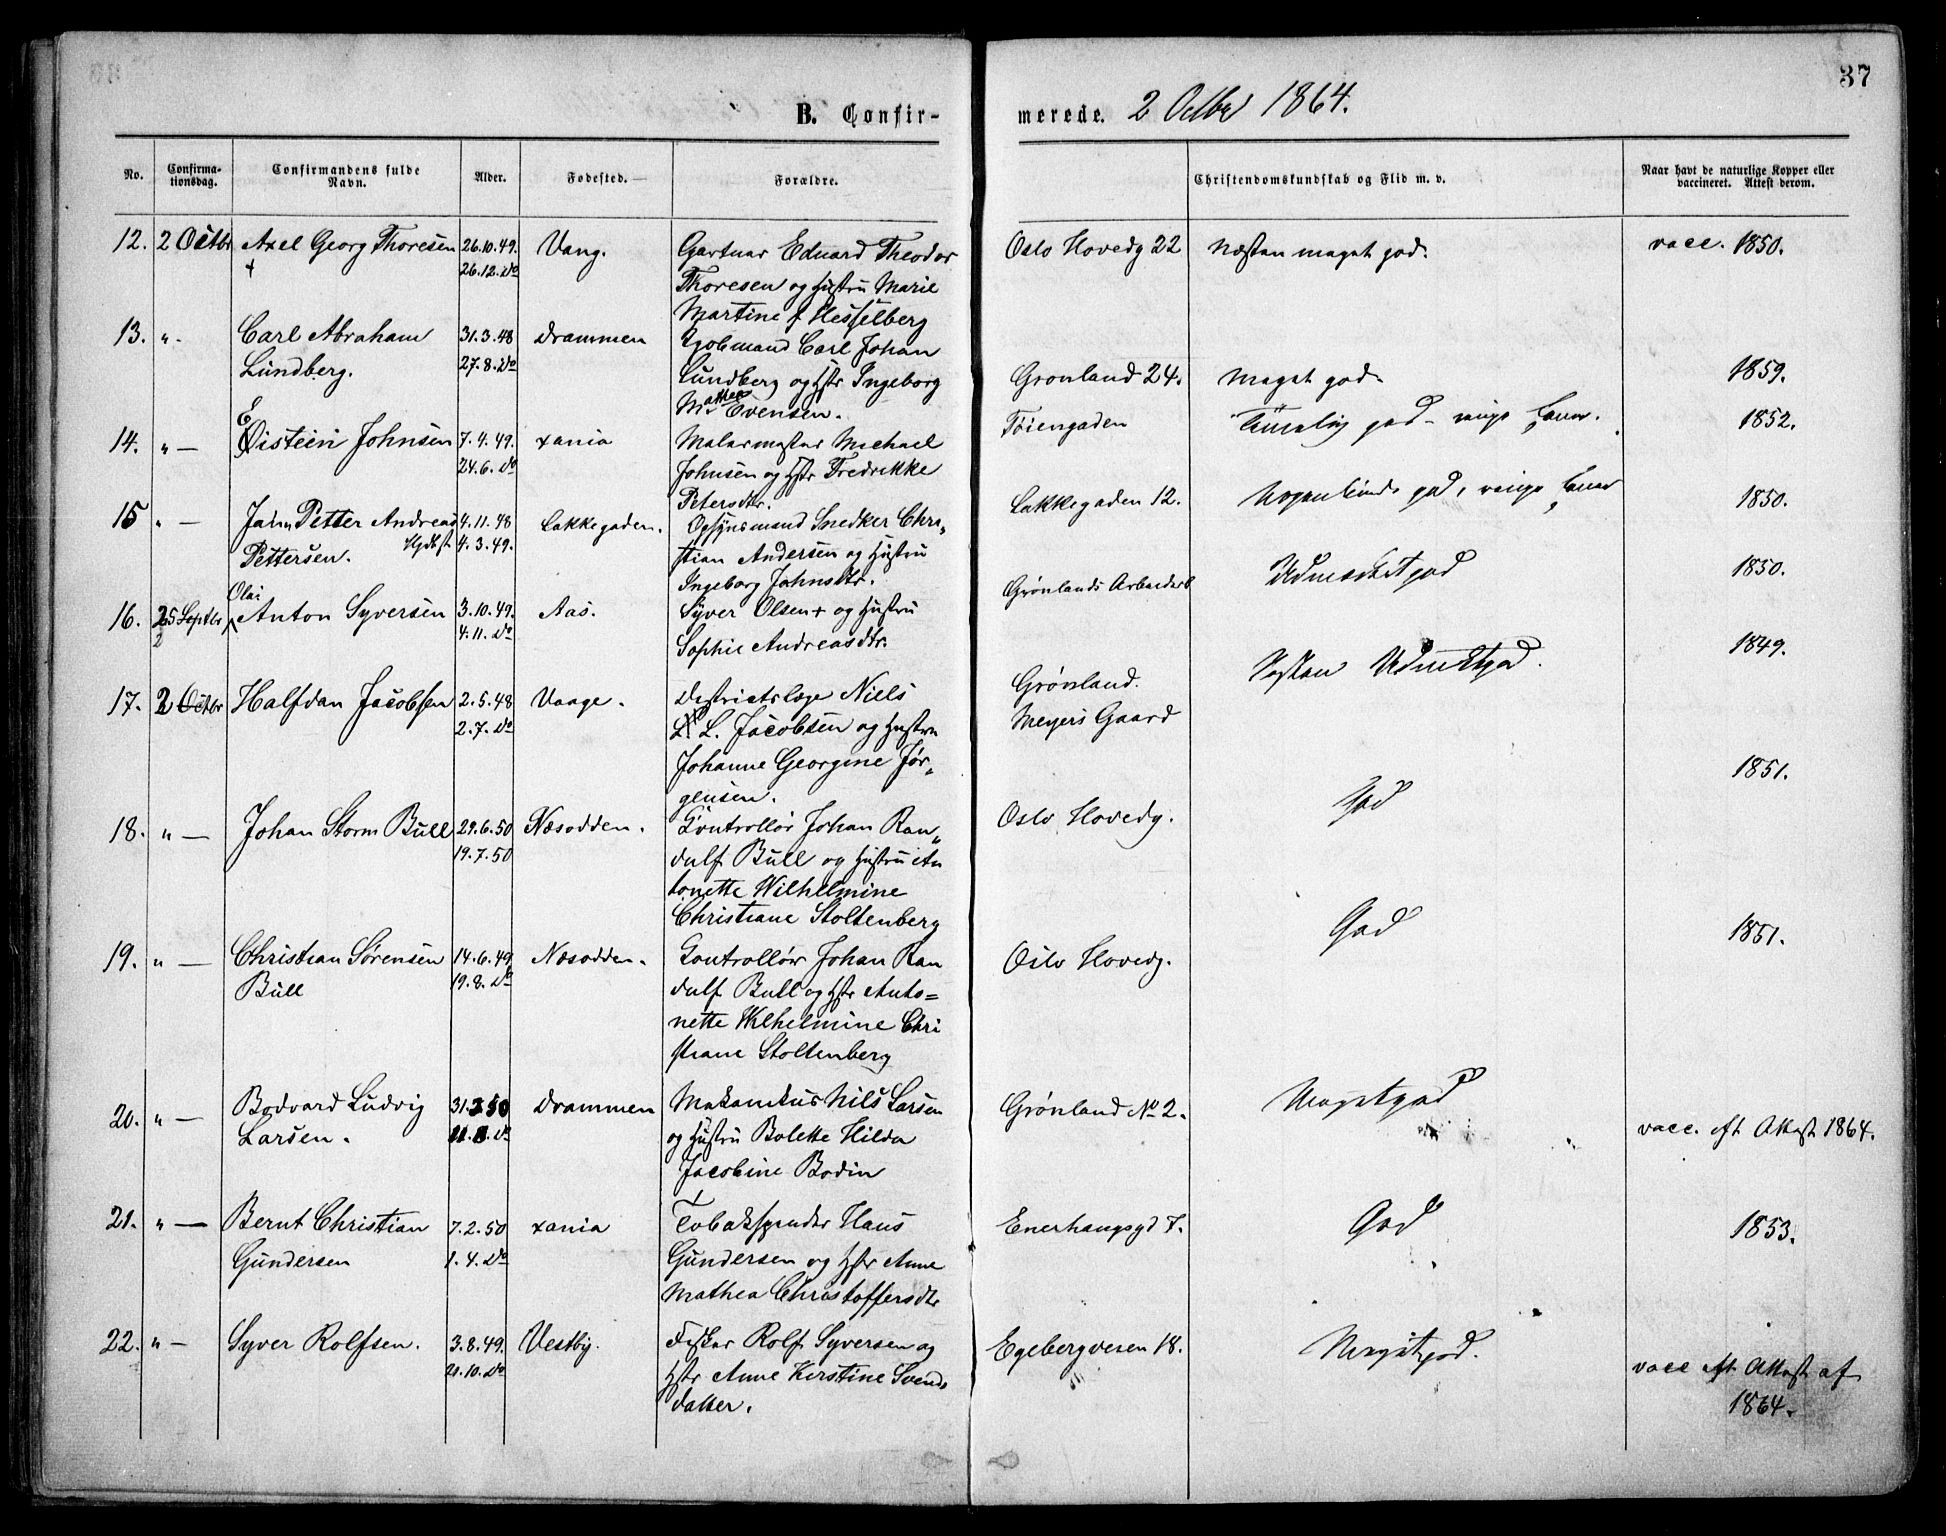 37
B. Confir-
merede. 2 Octbr 1864.
No.
Confirma-
tionsdag.
Confirmandens fulde
Navn.
Alder.
Fødested.
Forældre.
Christendomskundskab og Flid m. v.
Naar havt de naturlige Kopper eller
vaccineret. Attest derom.
12. 2 Octbr Axel Georg Thoresen 26.10.49. Vang. Gartner Eduard Theodor Oslo Hovedg 22 Næsten meget god. vacc. 1850.
+ 26.12. do Thoresen og Hustru Marie
Martine f. Hesselberg
13. „ Carl Abraham 31.3.48 Drammen Carl Johan
Lundberg. 27.8. do Lundberg og Hstr Ingeborg Grønland 24. Meget god. 1859.
Mathea Evensen.
14. „ — Øistein Johnsen 7.4.49. xania Malermester Michael Tøiengaden Temmelig god - 1852.
E 24.6. do Johnsen og Hstr Fredrikke
Petersdtr.
15 „ — Petter Andreas 4.11.48 Lakkegaden. Opsynsmand Snedker Chri- Lakkegaden 12. god, 1850.
Pettersen. 4.3.49. stian Andersen og Hustru
Ingeborg Johnsdtr.
16. 25 Septbr Olai Anton Syversen 3.10.49. Aas. Syver Olsen + og Hustru Grønlands Udmærket god 1850.
2 4.11. do Sophie Andreasdtr.
17. 2 Octbr Halfdan Jacobsen 2.5.48 Vaage. Districtslæge Niels Grønland. Næsten 1849.
2.7. do L. Jacobsen og Hustru Meyers Gaard
Johanne Georgine Jør-
gensen.
18. „ — Johan Storm Bull 29.6.50 Næsodden. Controllør Johan Ran- Oslo Hovedg. God 1851.
19.7.50 dulf Bull og Hustru An
tonette Wilhelmine
Christiane Stoltenberg
19. „ — Christian Sørensen 14.6.49 Næsodden. Controllør Johan Ran Oslo Hovedg. God 1851.
Bull 19.8. do dulf Bull og Hstr Anto=
nette Wilhelmine Chri
stiane Stoltenberg
20. „ — Bodvard Ludvig 31.3.50 Drammen Mekanikus Nils Larsen Grønland No 2. Meget god vacc. eft Attest 1864.
Larsen. og Hustru Bolette Hilda
Jacobine Bodin
21. „ — Bernt Christian 7.2.50 xania Tobakspinder Hans Enerhaugsgd 7. God 1853.
Gundersen 1.4. do Gundersen og Hstr Anne
Mathea Christoffersdtr
22. „ — Syver Rolfsen. 3.8.49. Vestby. Fisker Rolf Syversen og Egebergveien 18. Meget god. vacc eft Attest af
21.10. do Hstr Anne Kerstine Svends 1864.
datter.